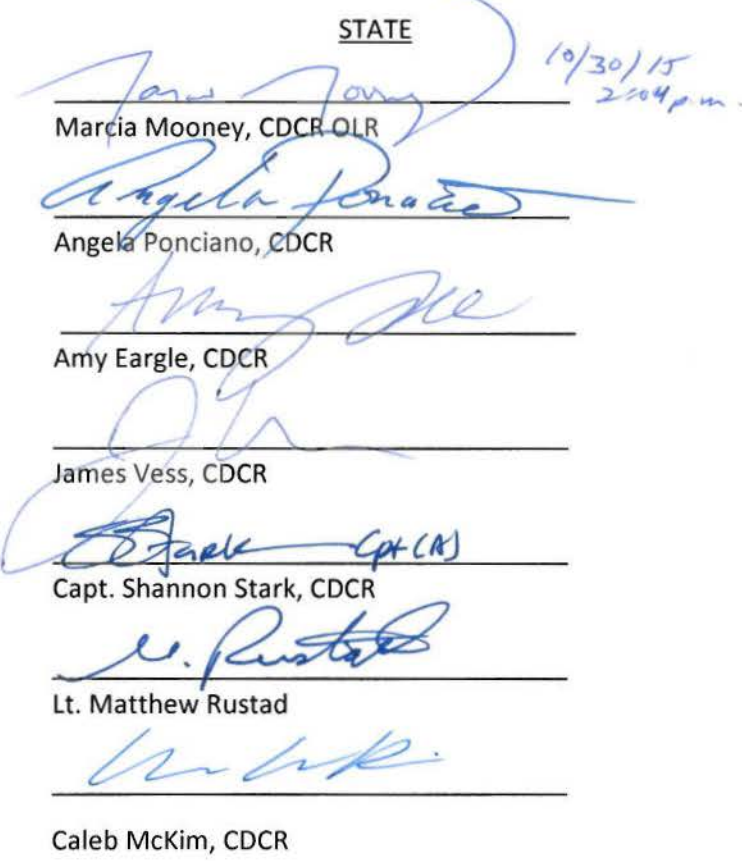 STATE
10/30/15
2:04 p.m.
Marcia Mooney, CDCR OLR
Angela Ponciano
Angela Ponciano, CDCR
Amy Eargle, CDCR
James Vess, CDCR
S Stark Cpt (A)
Capt. Shannon Stark, CDCR
M. Rustad
Lt. Matthew Rustad
Caleb McKim, CDCR